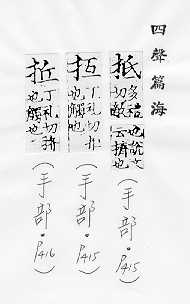 四聲篇海
抵 多禮切敵也說文云擠也
(手部·P415)
丁礼切 也觸也
(手部·P415)
丁礼切 也觸也
(手部·P416)